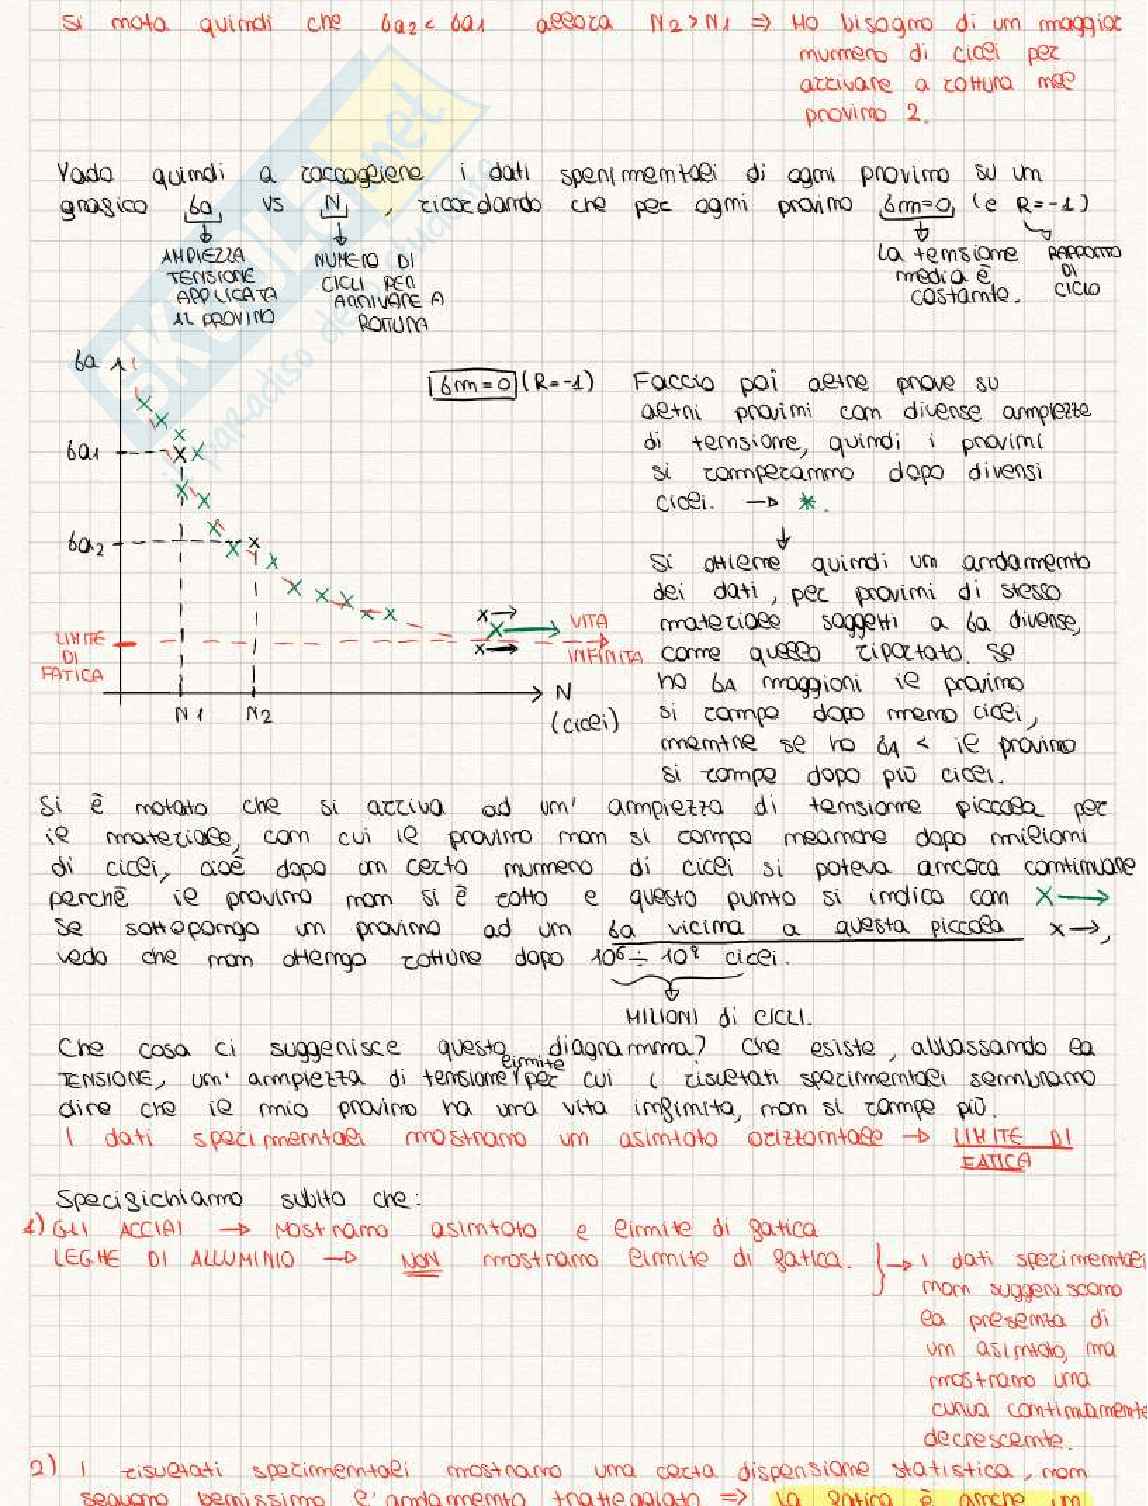 Si nota quindi che σa2 < σa1 allora N2 > N1 ⇒ Ho bisogno di un maggior
numero di cicli per
arrivare a rottura nel
provino 2.
Vado quindi a raccogliere i dati sperimentali di ogni provino su un
grafico σa vs N, ricordando che per ogni provino σm=0, (e R=-1)
AMPIEZZA
TENSIONE
APPLICATA
AL PROVINO
NUMERO DI
CICLI PER
ARRIVARE A
ROTTURA
La tensione
media è
costante.
RAPPORTO
DI
CICLO
σa
σm=0 (R=-1)
σa1
σa2
LIMITE
DI
FATICA
VITA
INFINITA
N1 N2
N
(cicli)
Faccio poi altre prove su
altri provini con diverse ampiezze
di tensione, quindi i provini
si romperanno dopo diversi
cicli. → *.
Si ottiene quindi un andamento
dei dati, per provini di stesso
materiale soggetti a σa diverse,
come quello riportato. Se
ho σA maggiori il provino
si rompe dopo meno cicli,
mentre se ho σA < il provino
si rompe dopo più cicli.
Si è notato che si arriva ad un' ampiezza di tensione piccola per
il materiale, con cui il provino non si rompe neanche dopo milioni
di cicli, cioè dopo un certo numero di cicli si poteva ancora continuare
perchè il provino non si è rotto e questo punto si indica con X→
Se sottopongo un provino ad un σa vicina a questa piccola x→,
vedo che non ottengo rotture dopo 10⁶ ÷ 10⁸ cicli.
MILIONI di CICLI.
Che cosa ci suggerisce questo diagramma? Che esiste, abbassando la
TENSIONE, un' ampiezza di tensione limite per cui i risultati sperimentali sembrano
dire che il mio provino ha una vita infinita, non si rompe più.
I dati sperimentali mostrano un asintoto orizzontale → LIMITE DI
FATICA
Specifichiamo subito che:
1) GLI ACCIAI → Mostrano asintoto e limite di fatica
LEGHE DI ALLUMINIO → NON mostrano limite di fatica.
→ I dati sperimentali
non suggeriscono
la presenza di
un asintoto, ma
mostrano una
curva continuamente
decrescente.
2) I risultati sperimentali mostrano una certa dispersione statistica, non
seguono benissimo l'andamento tratteggiato ⇒ La fatica è anche un
SKUOLA.net
il paradiso dello studente